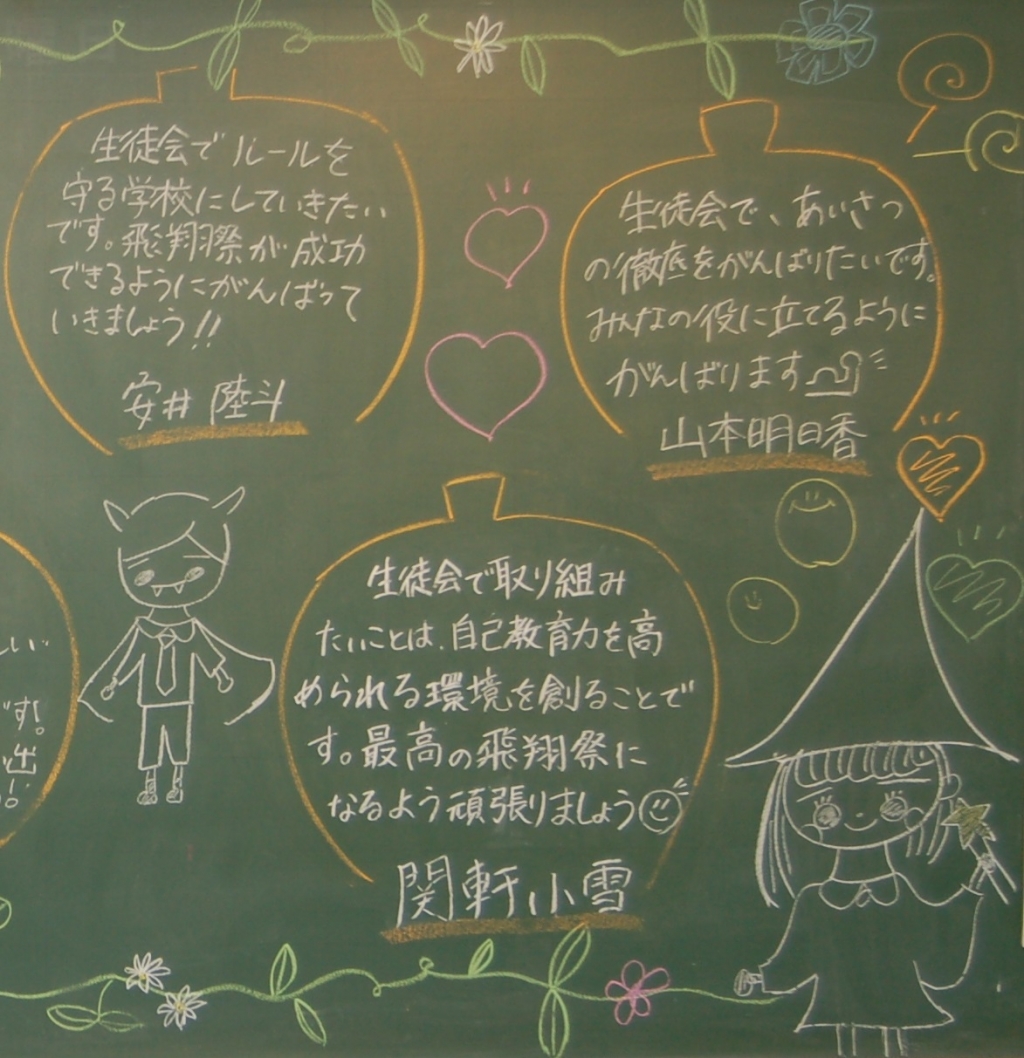 生徒会でルールを
守る学校にしていきたい
です。飛翔祭が成功
できるようにがんばって
いきましょう!!
安井 陸斗
生徒会で、あいさつ
の徹底をがんばりたいです。
みんなの役に立てるように
がんばります
山本明日香
生徒会で取り組み
たいことは、自己教育力を高
められる環境を創ることで
す。最高の飛翔祭に
なるよう頑張りましょう
関軒小雪
しい
す!
出